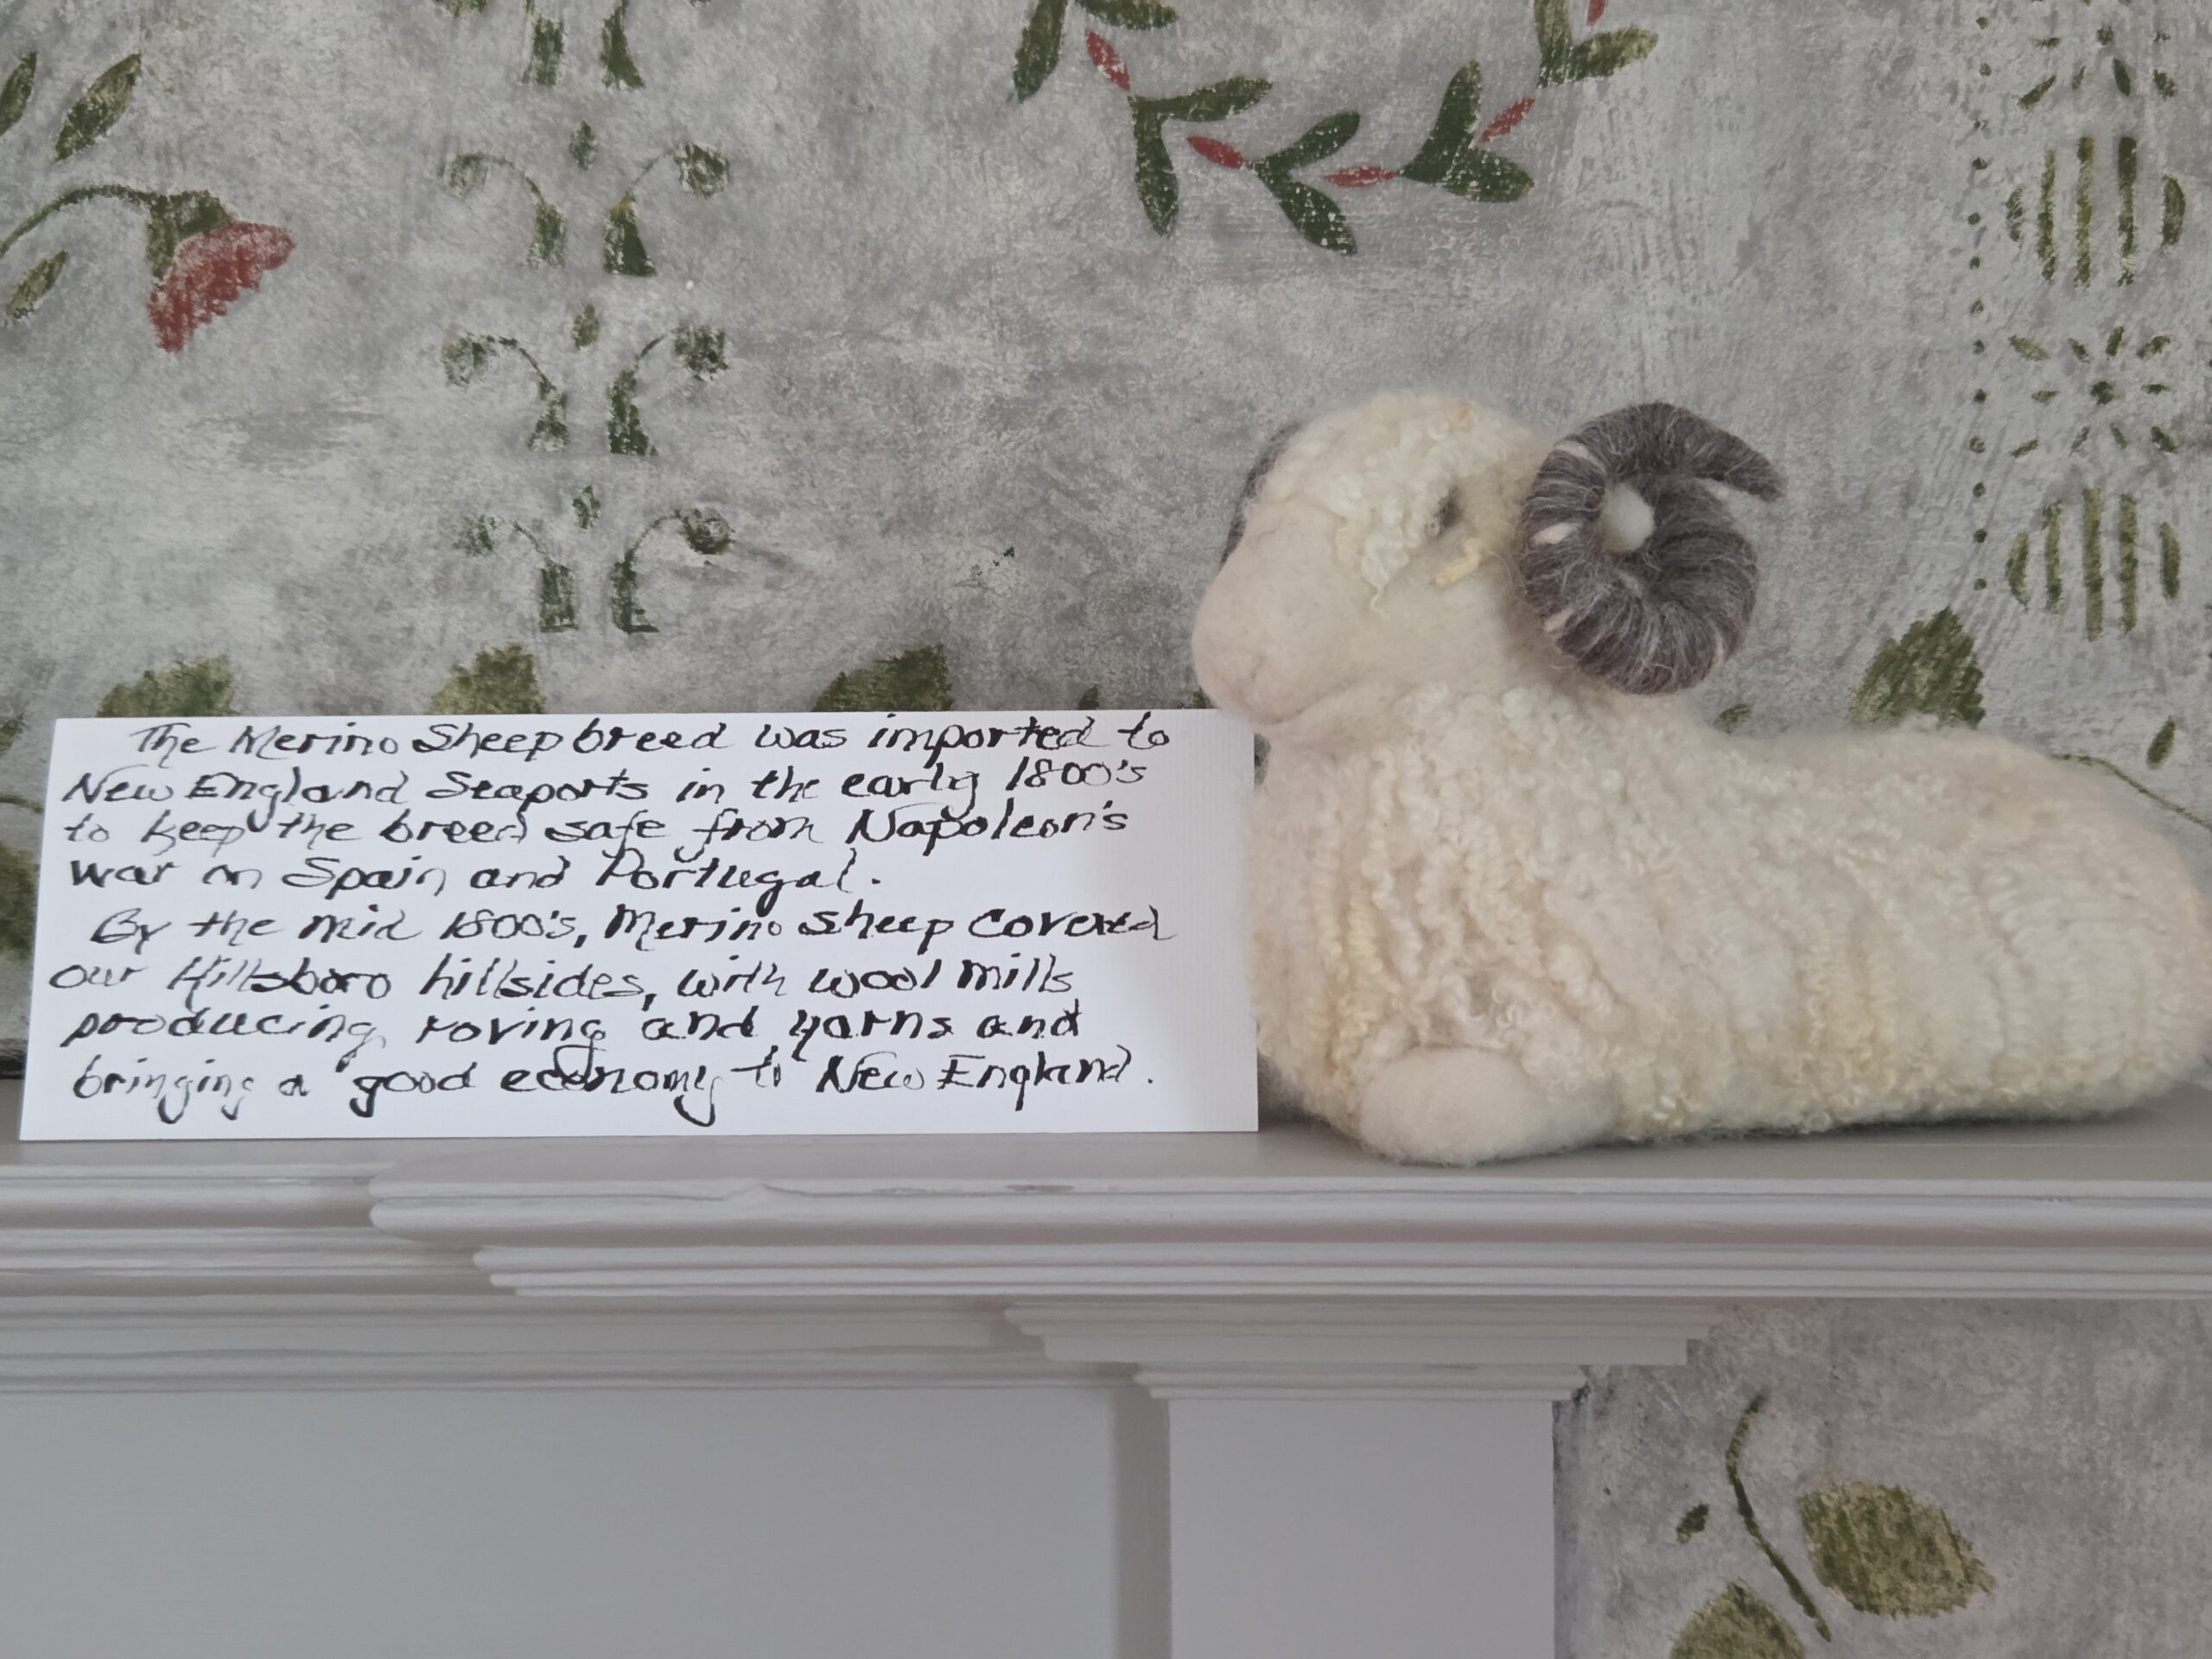 The Merino Sheep breed was imported to
New England Seaports in the early 1800's
to keep the breed safe from Napoleon's
war on Spain and Portugal.
By the mid 1800's, Merino sheep covered
our Hillsboro hillsides, with wool mills
producing roving and yarns and
bringing a good economy to New England.